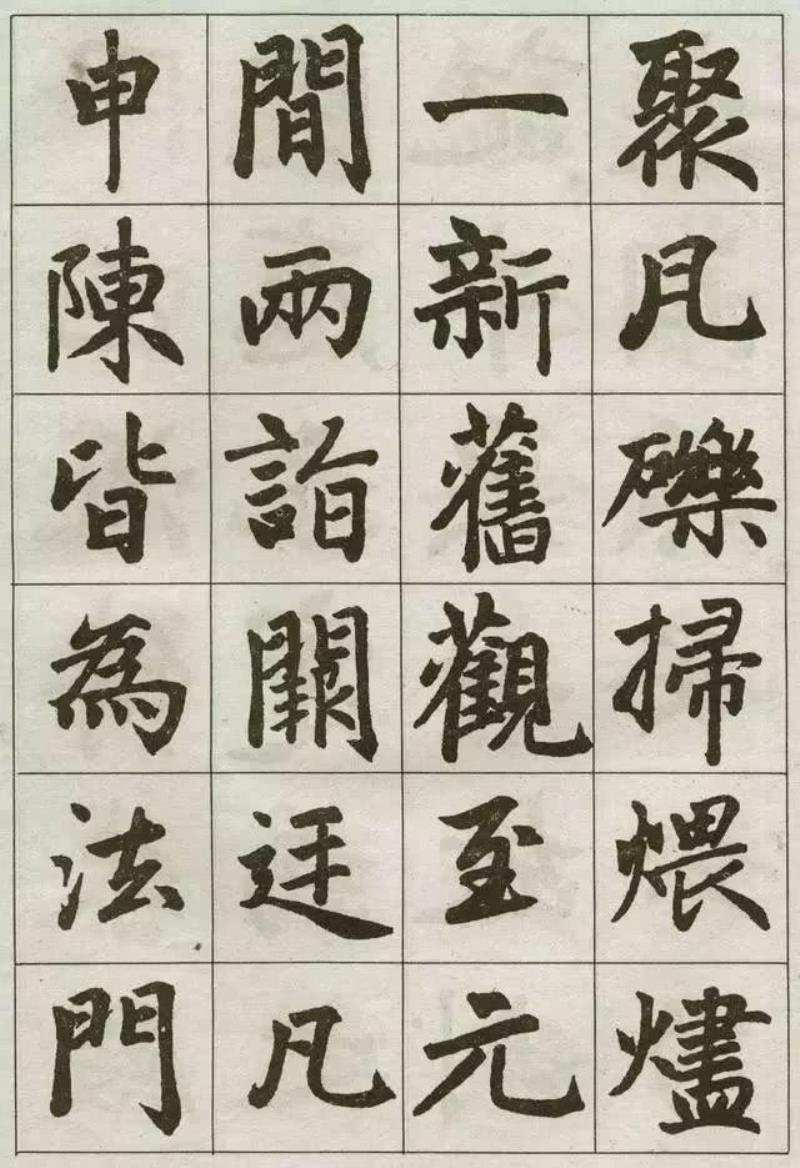 聚瓦礫掃煨燼
一新舊觀至元
間兩詣闕廷凡
申陳皆為法門